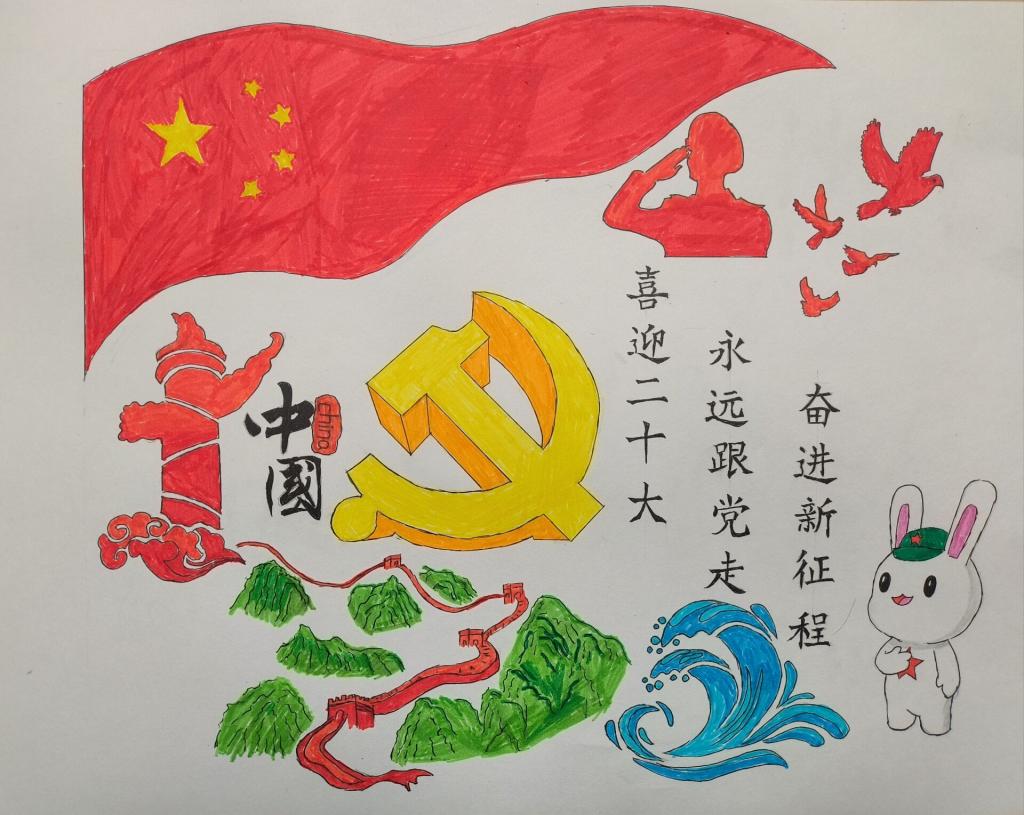 中國
china
喜迎二十大
永远跟党走
奋进新征程